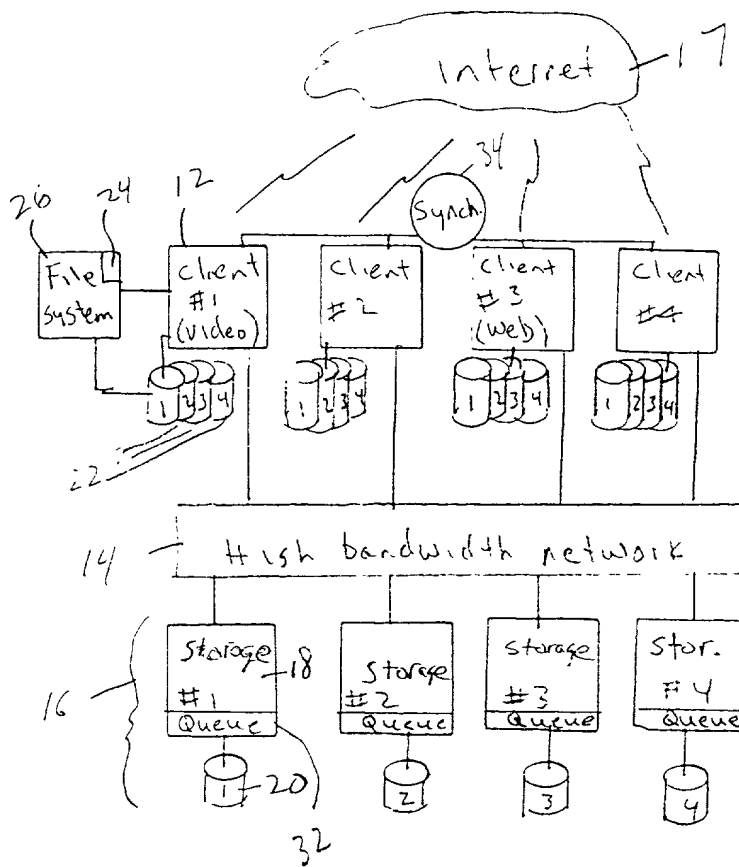 Internet
17
34
Synch.
26
24
12
File
system
Client
#1
(Video)
Client
#2
Client
#3
(Web)
Client
#4
1 2 3 4
1 2 3 4
1 2 3 4
1 2 3 4
22
14
High bandwidth network
16
Storage
#1
18
Queue
Storage
#2
Queue
Storage
#3
Queue
Stor.
#4
Queue
1
20
2
3
4
32